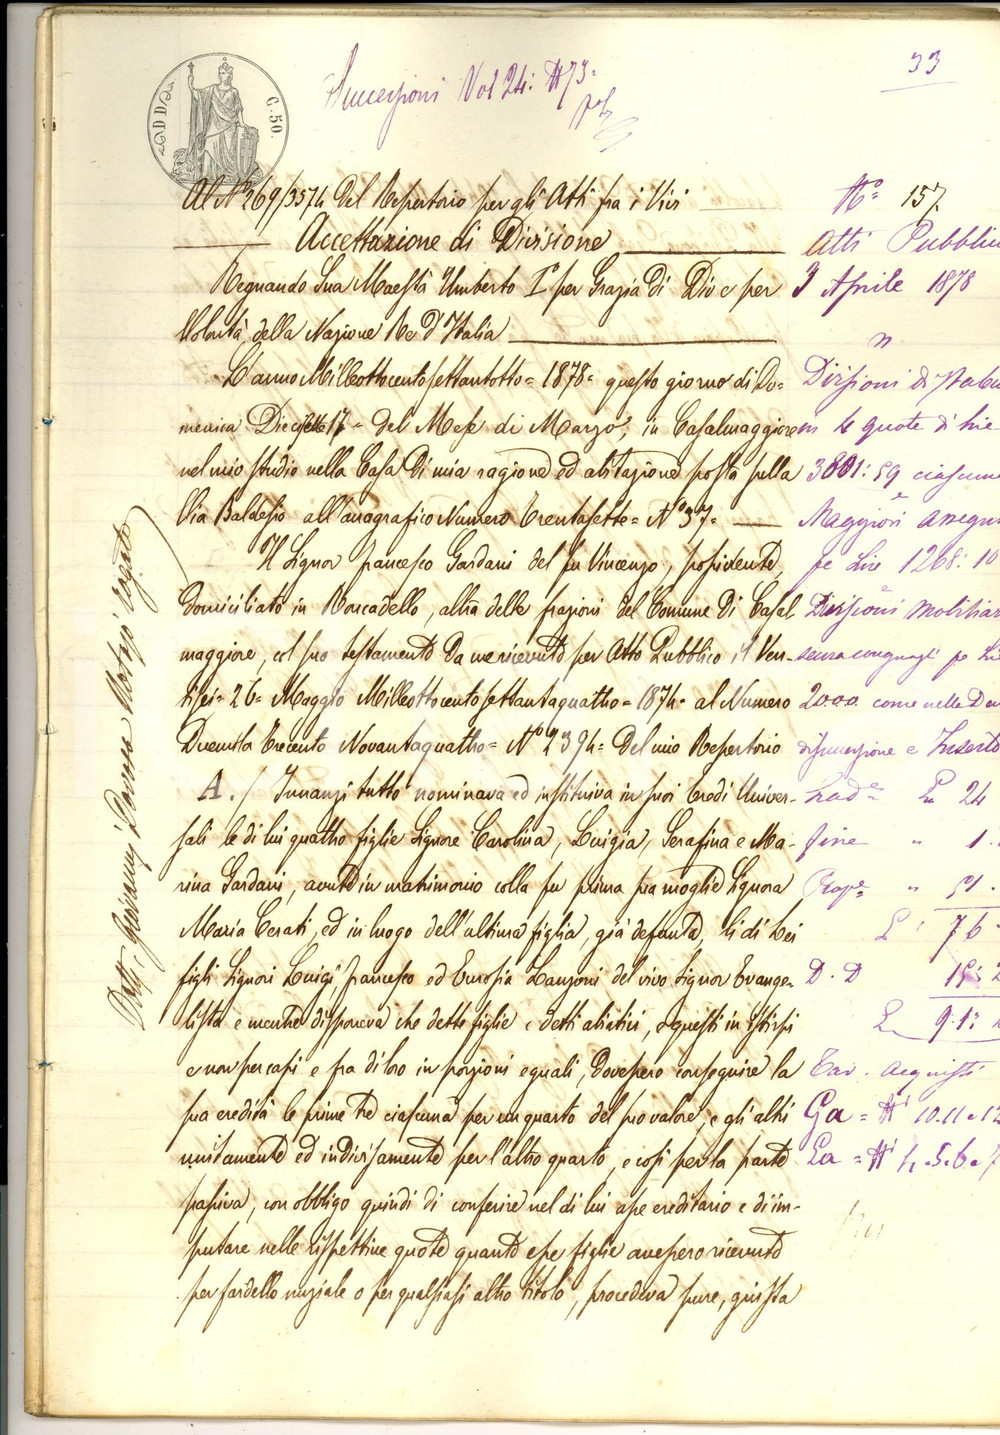 Successioni Vol 24: N 73=
33
C. 50.
Al N° 269/3574 del Repertorio per gli Atti fra i Vivi
Accettazione di Divisione
Regnando Sua Maestà Umberto I° per Grazia di Dio e per
Volontà della Nazione Re d'Italia
L'anno Milleottocentosettantotto = 1878 = questo giorno di Do=
menica Diecisette 17 = del Mese di Marzo, in Casalmaggiore
nel mio studio nella Casa di mia ragione ed abitazione posta sulla
Via Baldesio all'anagrafico Numero Trentasette = N° 37 =
Il Signor Francesco Gardani del fu Vincenzo, possidente,
domiciliato in Roncadello, altra delle frazioni del Comune di Casal
maggiore, col suo testamento da me ricevuto per Atto Pubblico il Ven-
tisei = 26 = Maggio Milleottocentosettantaquattro = 1874 = al Numero
Duemila Trecento Novantaquattro = N° 2394 = del mio Repertorio
A. / Innanzi tutto nominava ed instituiva in suoi Eredi Univer-
sali le di lui quattro figlie Signore Carolina, Luigia, Serafina e Ma-
rina Gardani, avute in matrimonio colla fu prima sua moglie Signora
Maria Cerati, ed in luogo dell'ultima figlia, già defunta, li di Lei
figli Signori Luigi, Francesco ed Eurosia Lanzoni del vivo Signor Evange-
lista e mentre disponeva che dette figlie e detti abiatici, e questi in istirpi
e non per capi e fra di loro in porzioni eguali, dovessero conseguire la
sua eredità le prime tre ciascuna per un quarto del suo valore, e gli altri
unitamente ed indivisamente per l'altro quarto, e così per la parte
passiva, con obbligo quindi di conferire nel di lui asse ereditario e di im-
putare nelle rispettive quote quanto esse figlie avessero ricevuto
per fardello nuziale o per qualsiasi altro titolo, procedeva pure, giusta
Dott. Giovanni Notajo rogato
N° 157
Atti Pubblici
3 Aprile 1878
Divisioni di Stabi
in 4 quote di Lire
3801:59 ciascuna
Maggiori assegni
per Lire 1268:10
Divisioni Mobiliari
senza conguagli per Li
2000 come nelle Den
di successione e Inserto
Grad.e L. 24
fine " 1.
Prop.e " 51.
L. 76.
D. D 15:2
L. 91:
Tav. acquisti
Ga = N 10.11 e 12
La = N 4.5.6 e 7